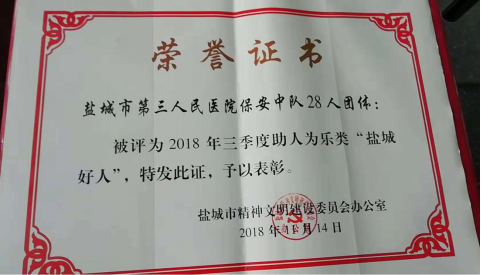 荣誉证书
盐城市第三人民医院保安中队28人团体：
被评为2018年三季度助人为乐类“盐城
好人”，特发此证，予以表彰。
盐城市精神文明建设委员会办公室
2018年11月14日